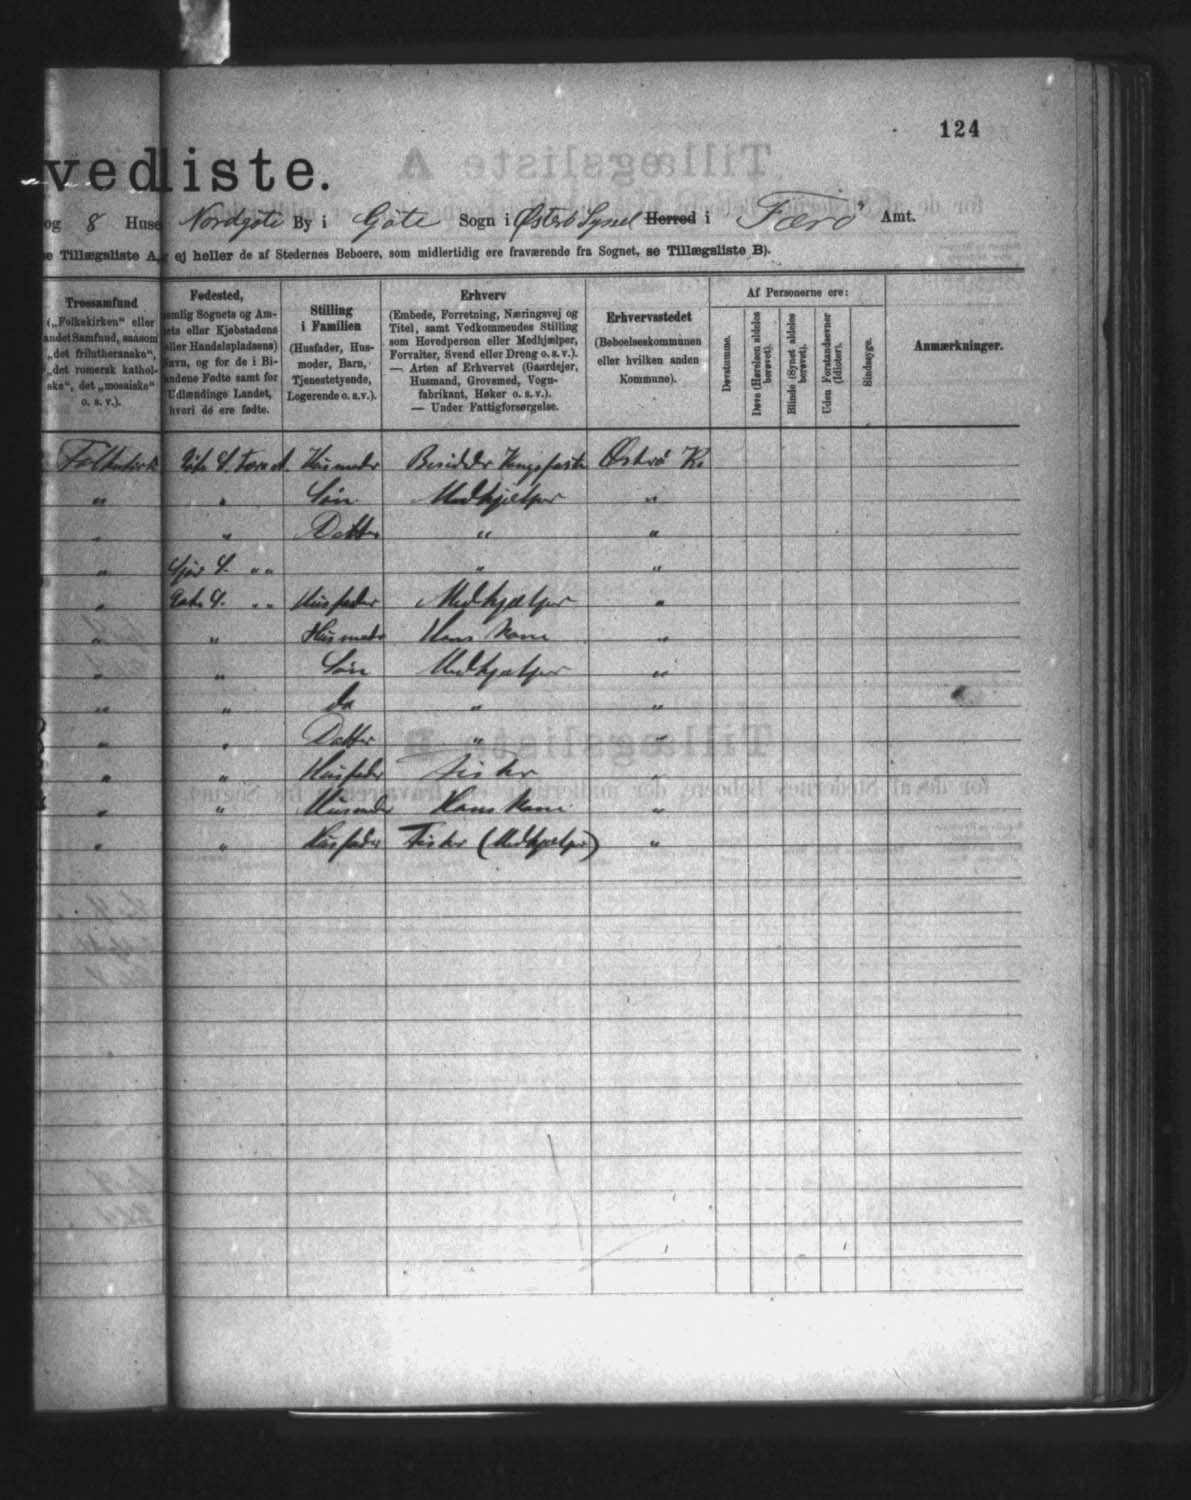 124
vedliste.
og 8 Huse Nordgöte By i Göte Sogn i Østerö Sysel Herred i Færö Amt.
e Tillægsliste A, ej heller de af Stedernes Beboere, som midlertidig ere fraværende fra Sognet, se Tillægsliste B).
Trossamfund
(„Folkekirken“ eller
andet Samfund, saasom
„det frilutheranske“,
„det romersk kathol-
ske“, det „mosaiske“
o. s. v.).
Fødested,
nemlig Sognets og Am-
ets eller Kjøbstadens
eller Handelspladsens)
Navn, og for de i Bi-
andene Fødte samt for
Udlændinge Landet,
hvori de ere fødte.
Stilling
i Familien
(Husfader, Hus-
moder, Barn,
Tjenestetyende,
Logerende o. s.v.).
Erhverv
(Embede, Forretning, Næringsvej og
Titel, samt Vedkommendes Stilling
som Hovedperson eller Medhjælper,
Forvalter, Svend eller Dreng o. s. v.).
— Arten af Erhvervet (Gaardejer,
Husmand, Grovsmed, Vogn-
fabrikant, Høker o. s. v.).
— Under Fattigforsørgelse.
Erhvervsstedet
(Beboelseskommunen
eller hvilken anden
Kommune).
Af Personerne ere:
Døvstumme.
Døve (Hørelsen aldeles
berøvet).
Blinde (Synet aldeles
berøvet).
Uden Forstandsevner
(Idioter).
Sindssyge.
Anmærkninger.
Folkekirk Göte S. Færø A. Husmoder Besidder Kongsfæste Østerö K.
" " Søn Medhjælper "
" " Datter " "
" S. " " " "
" Göte S. " " Husfader Medhjælper "
" " Husmoder Hans Kone "
" " Søn Medhjælper "
" " do " "
" " Datter " "
" " Husfader Fisker "
" " Husmoder Hans Kone "
" " Husfader Fisker (Medhjælper) "